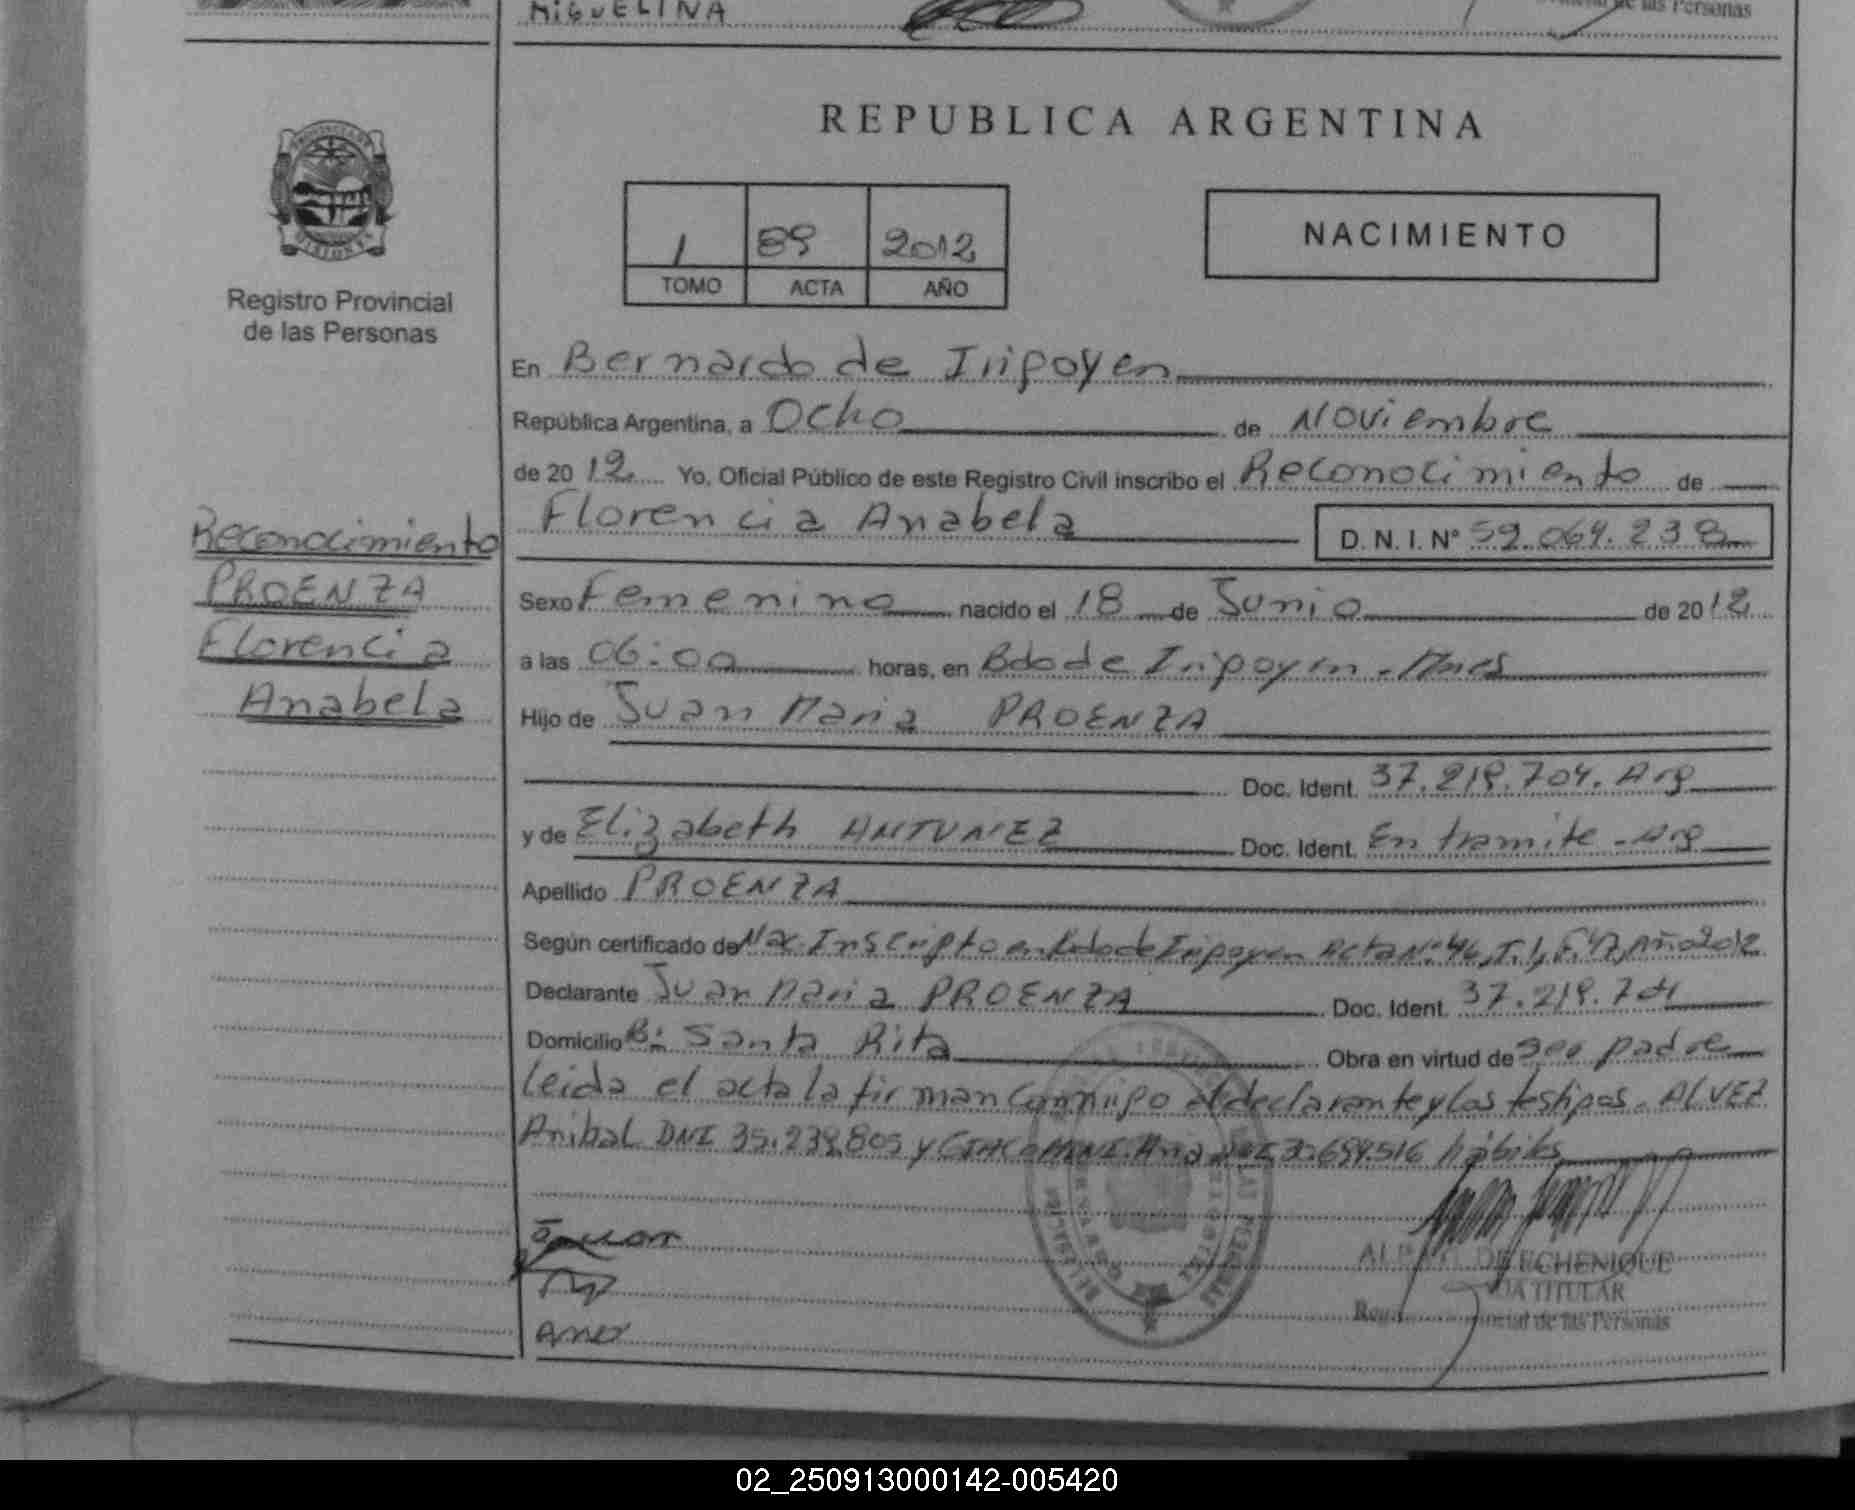 MIGUELINA
de las Personas
REPUBLICA ARGENTINA
PROVINCIA DE
MISIONES
Registro Provincial
de las Personas
1 89 2012
TOMO ACTA AÑO
NACIMIENTO
En Bernardo de Irigoyen
República Argentina, a Ocho de Noviembre
de 20 12 Yo, Oficial Público de este Registro Civil inscribo el Reconocimiento de
Florencia Anabela D. N. I. Nº 52.064.238
Reconocimiento
PROENZA
Florencia
Anabela
Sexo Femenino nacido el 18 de Junio de 2012
a las 06:00 horas, en Bdo de Irigoyen - Mnes
Hijo de Juan Maria PROENZA
Doc. Ident. 37.219.704. Arg
y de Elizabeth ANTUNEZ Doc. Ident. En tramite - Arg
Apellido PROENZA
Según certificado de Nac. Inscripto en Bdo de Irigoyen Acta Nº 46, T. 1, F. 47, Año 2012
Declarante Juan Maria PROENZA Doc. Ident. 37.219.704
Domicilio Bº Santa Rita Obra en virtud de ser padre
leida el acta la firman conmigo el declarante y los testigos. ALVEZ
Anibal DNI 35.239.805 y GIACOMINI Ana DNI 30.694.516 hábiles
Juan
Ana
DE ECHENIQUE
TITULAR
de las Personas
02_250913000142-005420